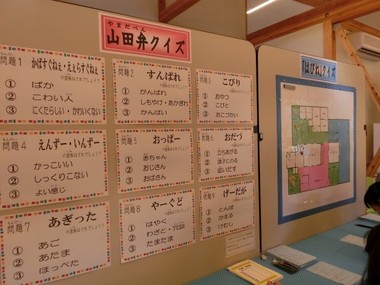 やまだべん
山田弁クイズ
「はぴね」クイズ
問題1 かばすぐねぇ・えぇらすぐねぇ
① ばか
② こわい人
③ にくたらしい・かわいくない
問題2 すんばれ
① がんばれ
② しもやけ・あかぎれ
③ かんぱい
問題3 こびり
① おやつ
② こびと
③ おこづかい
問題4 えんずー・いんずー
① かっこいい
② しっくりこない
③ よい感じ
問題5 おっぱー
① 赤ちゃん
② おじさん
③ おばさん
問題6 おだつ
① 立ちあがる
② 調子にのる
③ 追いだす
問題7 あぎった
① あご
② あたま
③ ほっぺた
問題8 やーぐど
① はやく
② わざと・冗談
③ たまたま
問題9 げーだが
① とんぼ
② かまる
③ けむし